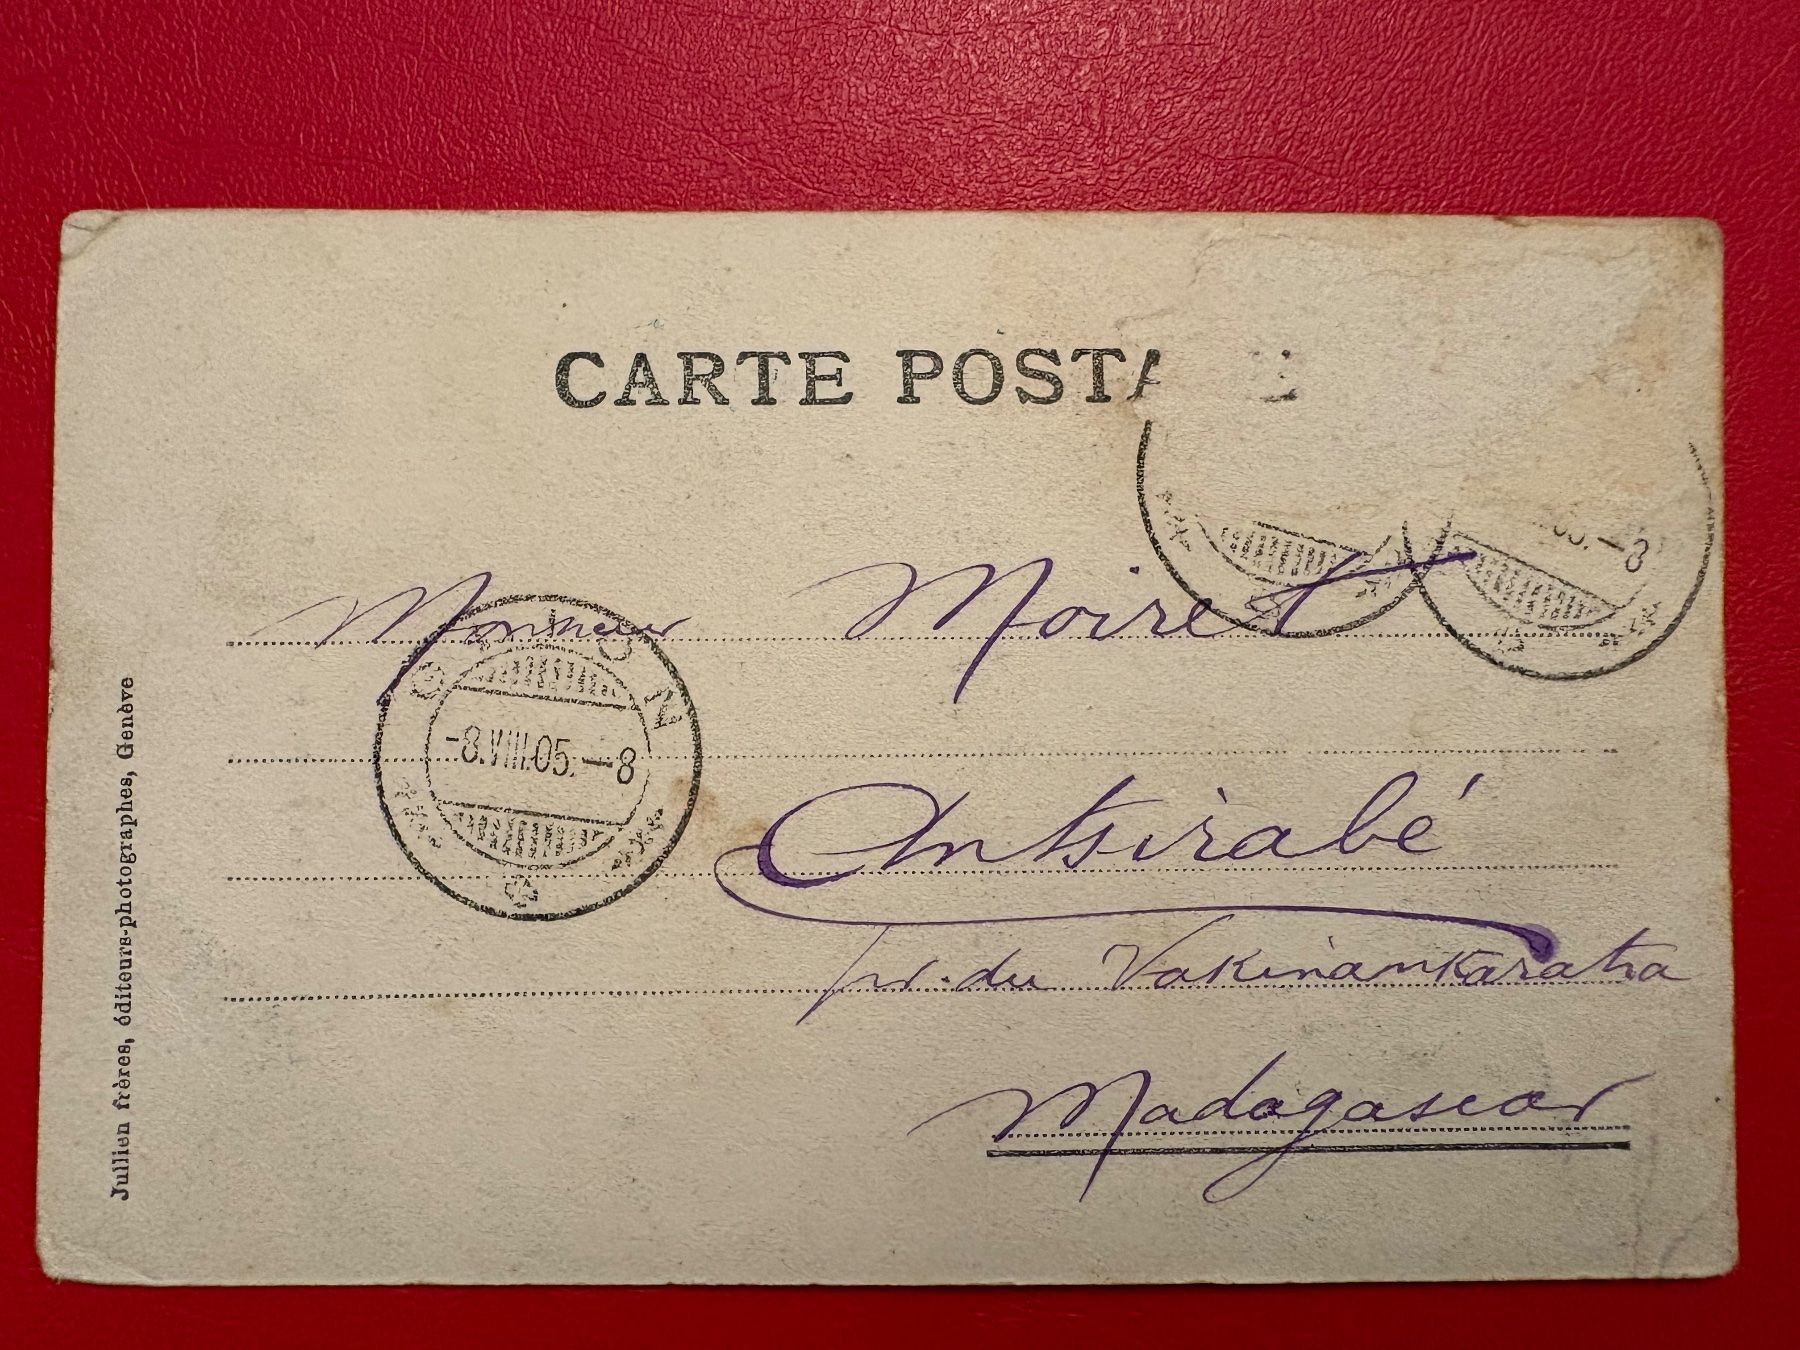 CARTE POSTA
05.–8
Monsieur Moiret
G L N
-8.VIII.05.–8
Antsirabé
pr. du Vakinankaratra
Madagascar
Jullien frères, éditeurs-photographes, Genève